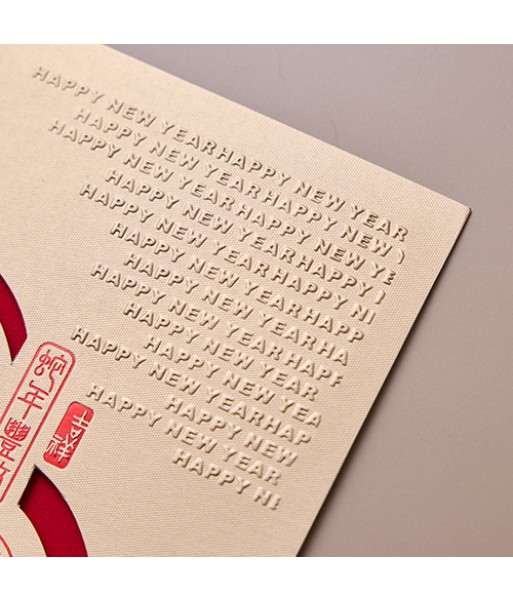 HAPPY NEW YEARHAPPY NEW YEAR
HAPPY NEW YEARHAPPY NEW
HAPPY NEW YEARHAPPY NEW YE
HAPPY NEW YEARHAPPY
HAPPY NEW YEARHAPPY N
HAPPY NEW YEARHAPP
HAPPY NEW YEARHA
HAPPY NEW YEARHAP
HAPPY NEW YEAR
HAPPY NEW YEARHAPPY NEW YEA
HAPPY NEW YEARHAP
HAPPY NEW
HAPPY NEW YEAR
HAPPY NE
蛇年豐
吉祥